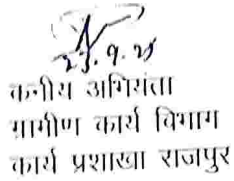 23.9.25
कनीय अभियंता
ग्रामीण कार्य विभाग
कार्य प्रशाखा राजपुर